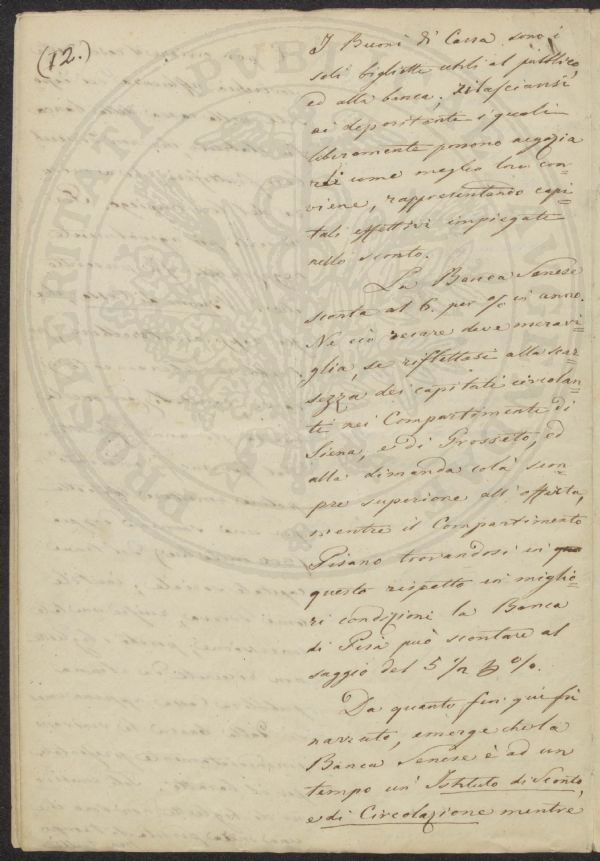 (12.)
I Buoni di Cassa sono i
soli biglietti utili al pubblico,
ed alla banca; rilasciansi
ai depositanti i quali
liberamente possono negozia
rli come meglio loro con=
viene, rappresentando capi=
tali effettivi impiegati
nello sconto.
La Banca Senese
sconta al 6. per % in anno.
Nè ciò recare deve meravi=
glia, se riflettasi alla scar=
sezza dei capitali circolan=
ti nei Compartimenti di
Siena, e di Grosseto, ed
alla dimanda colà sem=
pre superiore all'offerta,
mentre il Compartimento
Pisano trovandosi in
questo rispetto in miglio=
ri condizioni la Banca
di Pisa può scontare al
saggio del 5 1/2 p %.
Da quanto fin qui fu
narrato, emerge che la
Banca Senese è ad un
tempo un' Istituto di Sconto,
e di Circolazione mentre